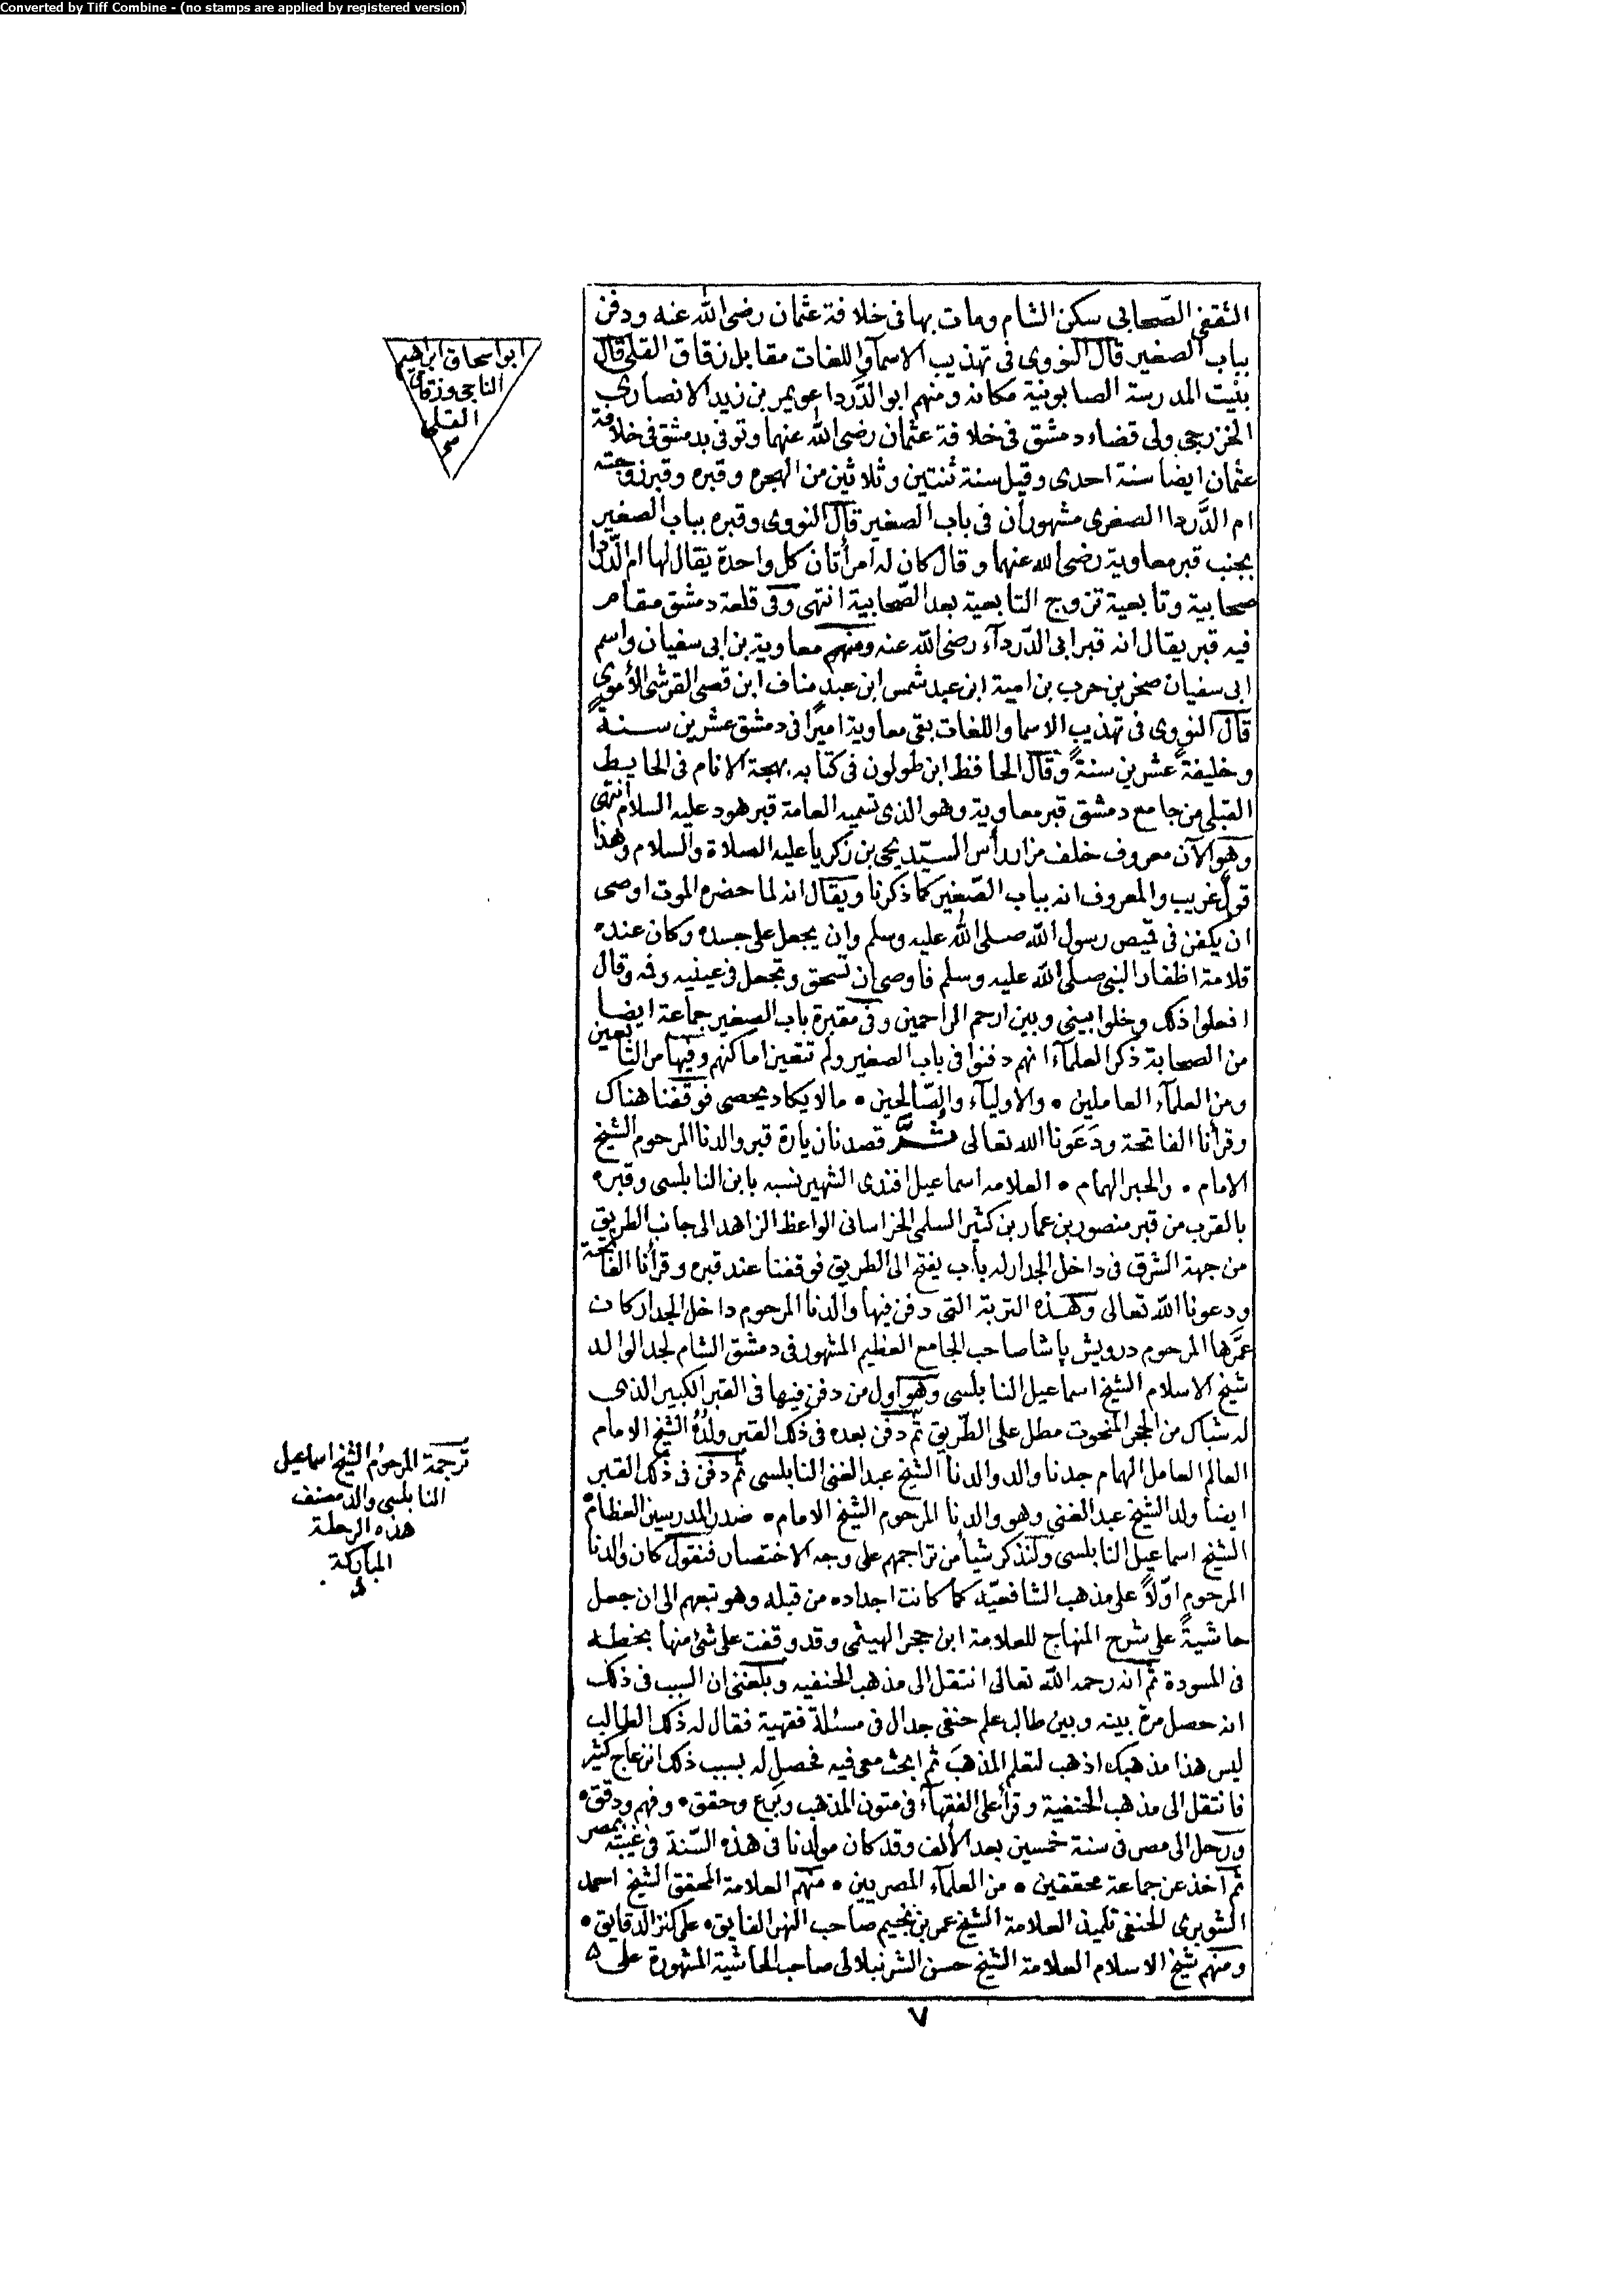 Converted by Tiff Combine - (no stamps are applied by registered version)
الثقفى الصّحابى سكن الشام ومات بها فى خلافة عثمان رضى الله عنه ودفن
بباب الصغير قال النووى فى تهذيب الاسمآ واللغات مقابل زقاق القلى قال
بنيت المدرسة الصابونية مكانه ومنهم ابو الدَّردا عويمر بن زيد الانصارى
الخزرجى ولى قضاء دمشق فى خلافة عثمان رضى الله عنهما وتوفى بدمشق فى خلافة
عثمان ايضا سنة احدى وقيل سنة ثنتين وثلاثين من الهجره وقبره وقبر زوجته
ام الدَّردا الصغرى مشهوران فى باب الصغير قال النووى وقبره بباب الصغير
بجنب قبر معاوية رضى الله عنهما وقال كان له امرأتان كل واحدة يقال لها ام الدّردا
صحابية وتابعية تزوج التابعية بعد الصّحابية انتهى وفى قلعة دمشق مقام
فيه قبر يقال انه قبر ابى الدّردآء رضى الله عنه ومنهم معاوية بن ابى سفيان واسم
ابى سفيان صخر بن حرب بن امية ابن عبد شمس ابن عبد مناف ابن قصى القرشى الأموى
قال النووى فى تهذيب الاسما واللغات بقى معاوية اميرًا فى دمشق عشرين سنةً
وخليفةً عشرين سنةً وقال الحافظ ابن طولون فى كتابه بهجة الانام فى الحايط
القبلى من جامع دمشق قبر معاوية وهو الذى تسميه العامة قبر هود عليه السلام انتهى
وهو الآن معروف خلف مزار رأس السيّد يحيى بن زكريا عليه الصلاة والسلام وهذا
قول غريب والمعروف انه بباب الصّغير كما ذكرنا ويقال انه لما حضره الموت اوصى
ان يكفن فى قميص رسول الله صلى الله عليه وسلم وان يجعل على جسده وكان عنده
قلامة اظفار النبى صلى الله عليه وسلم فاوصى ان تسحق وتجعل فى عينيه وفمه وقال
افعلوا ذلك وخلوا بينى وبين ارحم الراحمين وفى مقبرة باب الصغير جماعة ايضا
من الصحابة ذكر العلمآء انهم دفنوا فى باب الصغير ولم تتعين اماكنهم وفيها من التابعين
ومن العلمآء العاملين • والاوليآء والصّالحين • مالا يكاد يحصى فوقفنا هناك
وقرأنا الفاتحة ودَعَونا الله تعالى ثمَّ قصدنا زيارة قبر والدنا المرحوم الشيخ
الامام • والحبر الهمام • العلامه اسماعيل افندى الشهير نسبه بابن النابلسى وقبره
بالقرب من قبر منصور بن عمار بن كثير السلمى الخراسانى الواعظ الزاهد الى جانب الطريق
من جهة الشرق فى داخل الجدار له باب يفتح الى الطريق فوقفنا عند قبره وقرأنا الفاتحة
ودعونا الله تعالى وهذه التربة التى دفن فيها والدنا المرحوم داخل الجدار كان
عمَّرها المرحوم درويش پاشا صاحب الجامع العظيم المشهور فى دمشق الشام لجد الوالد
شيخ الاسلام الشيخ اسماعيل النابلسى وهو اول من دفن فيها فى القبر الكبير الذى
له شباك من الحجر المنحوت مطل على الطّريق ثم دفن بعده فى ذلك القبر ولدُهُ الشيخ الامام
العالم العامل الهمام جدنا والد والدنا الشيخ عبد الغنى النابلسى ثم دفن فى ذلك القبر
ايضا ولد الشيخ عبد الغنى وهو والدنا المرحوم الشيخ الامام • صدر المدرسين العظام
الشيخ اسماعيل النابلسى ولنذكر شيأ من تراجمهم على وجه الاختصار فنقول كان والدنا
المرحوم اوّلاً على مذهب الشافعيّة كما كانت اجداده من قبله وهو تبعهم الى ان جعل
حاشيةً على شرح المنهاج للعلامة ابن حجر الهيثمى وقد وقفت على شئ منها بخطه
فى المسودة ثم انه رحمه الله تعالى انتقل الى مذهب الحنفيه وبلغنى ان السبب فى ذلك
انه حصل مرة بينه وبين طالب علم حنفى جدال فى مسئلة فقهية فقال له ذلك الطالب
ليس هذا مذهبك اذهب لتعلم المذهبَ ثم ابحث معى فيه فحصل له بسبب ذلك انزعاج كثير
فانتقل الى مذهب الحنفية وقرأ على الفقهآء فى متون المذهب وبَرَع وحقق • وفهم ودقق •
ورحل الى مصر فى سنة خمسين بعد الألف وقد كان مولدنا فى هذه السّنة فى غيبته بمصر
ثم آخذ عن جماعة محققين • من العلمآء المصريين • منهم العلامة المحقق الشيخ احمد
الشوبرى الحنفى تلميذ العلامة الشيخ عمر بن نجيم صاحب النهر الفايق • على كنز الدقايق •
ومنهم شيخ الاسلام العلامة الشيخ حسن الشرنبلالى صاحب الحاشية المشهورة على
٧
ابو اسحاق ابراهيم
الناجى وزقاق
القلى
ترجمة المرحوم الشيخ اسماعيل
النابلسى والد مصنف
هذه الرحلة
المباركة